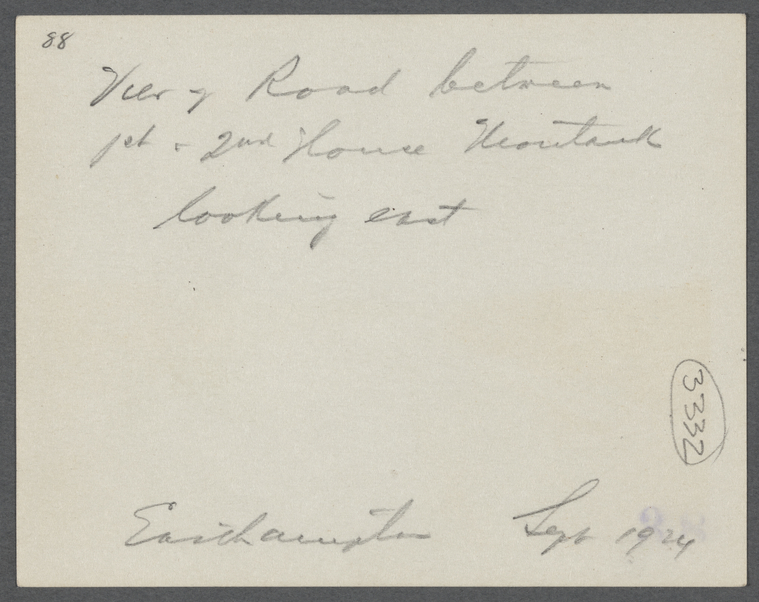 88
View of Road between
1st + 2nd House Montauk
looking east
3332
Easthampton Sept 1924